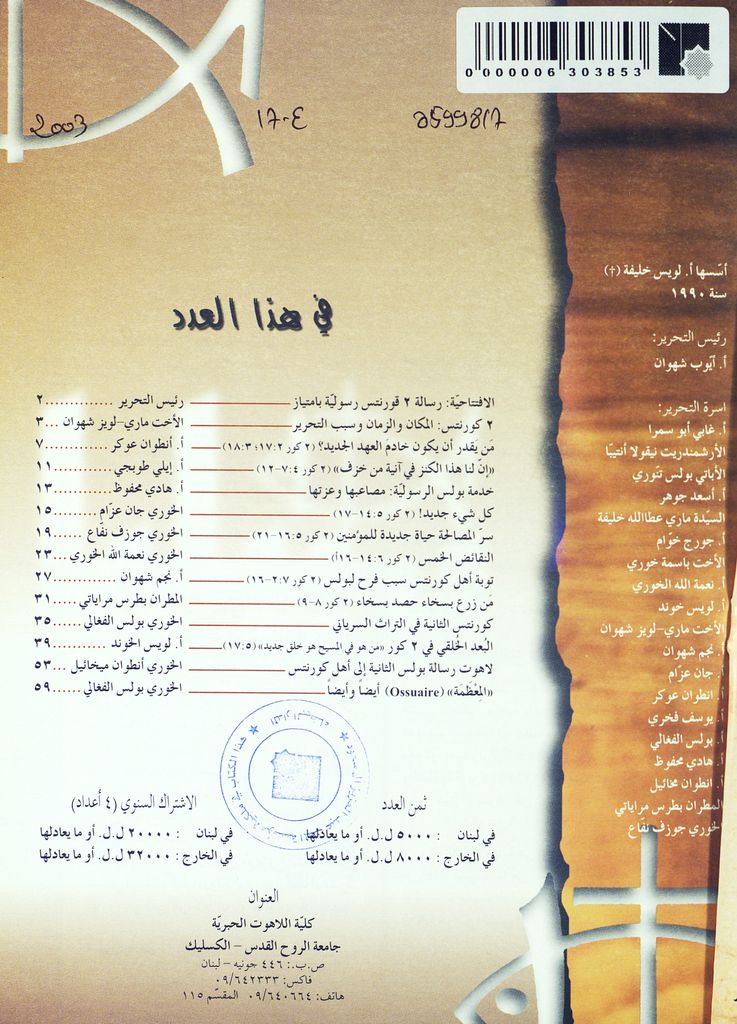 0 000006 303853
2003
17-E
a599817
أسّسها أ. لويس خليفة (†)
سنة ١٩٩٠
رئيس التحرير:
أ. أيّوب شهوان
اسرة التحرير:
أ. غابي أبو سمرا
الأرشمندريت نيقولا أنتيبّا
الأباتي بولس تنّوري
أ. أسعد جوهر
السيّدة ماري عطاالله خليفة
أ. جورج خوّام
الأخت باسمة خوري
أ. نعمة الله الخوري
أ. لويس خوند
الأخت ماري-لويز شهوان
أ. نجم شهوان
أ. جان عزّام
أ. انطوان عوكر
أ. يوسف فخري
أ. بولس الفغالي
أ. هادي محفوظ
أ. انطوان مخائيل
المطران بطرس مراياتي
الخوري جوزف نفّاع
في هذا العدد
الافتتاحيّة: رسالة ٢ قورنتس رسوليّة بامتياز رئيس التحرير .............. ٢
٢ كورنتس: المكان والزمان وسبب التحرير الأخت ماري-لويز شهوان ... ٣
مَن يَقدر أن يكون خادمَ العهد الجديد؟ (٢ كور ١٧:٢؛ ١٨:٣) أ. أنطوان عوكر ........... ٧
«إنّ لنا هذا الكنز في آنية من خزف» (٢ كور ٧:٤-١٢) أ. إيلي طوبجي ........... ١١
خدمة بولس الرسوليّة: مصاعبها وعزتها أ. هادي محفوظ .......... ١٣
كل شيء جديد! (٢ كور ١٤:٥-١٧) الخوري جان عزّام ........ ١٥
سرّ المصالحة حياة جديدة للمؤمنين (٢ كور ١٦:٥-٢١) الخوري جوزف نفّاع ...... ١٩
النقائض الخمس (٢ كور ١٤:٦-١٦أ) الخوري نعمة الله الخوري ... ٢٣
توبة أهل كورنتس سبب فرح لبولس (٢ كور ٢:٧-١٦) أ. نجم شهوان ............ ٢٧
مَن زرع بسخاء حصد بسخاء (٢ كور ٨-٩) المطران بطرس مراياتي ..... ٣١
كورنتس الثانية في التراث السرياني الخوري بولس الفغالي ...... ٣٥
البُعد الخُلقي في ٢ كور «من هو في المسيح هو خلق جديد» (١٧:٥) أ. لويس الخوند ........... ٣٩
لاهوت رسالة بولس الثانية إلى أهل كورنتس الخوري أنطوان ميخائيل ... ٥٣
«المِعْظَمَة» (Ossuaire) أيضاً وأيضاً الخوري بولس الفغالي ...... ٥٩
ثمن العدد
في لبنان : ٥٠٠٠ ل.ل. أو ما يعادلها
في الخارج : ٨٠٠٠ ل.ل. أو ما يعادلها
الاشتراك السنوي (٤ أعداد)
في لبنان : ٢٠٠٠٠ ل.ل. أو ما يعادلها
في الخارج : ٣٢٠٠٠ ل.ل. أو ما يعادلها
العنوان
كليّة اللاهوت الحبريّة
جامعة الروح القدس – الكسليك
ص.ب.: ٤٤٦ جونيه – لبنان
فاكس: ٠٩/٦٤٢٣٣٣
هاتف: ٠٩/٦٤٠٦٦٤ المقسّم ١١٥